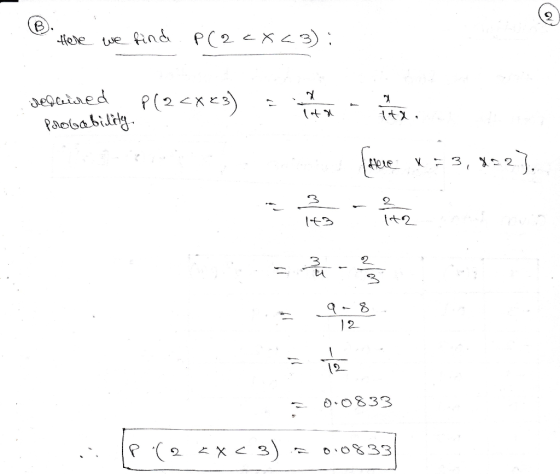 ②
Ⓑ. Here we find P(2 < X < 3) :
required P(2 < X < 3) = x/1+x - x/1+x.
Probability.
[Here x = 3, x = 2].
= 3/1+3 - 2/1+2
= 3/4 - 2/3
= 9-8/12
= 1/12
= 0.0833
∴ P (2 < X < 3) = 0.0833